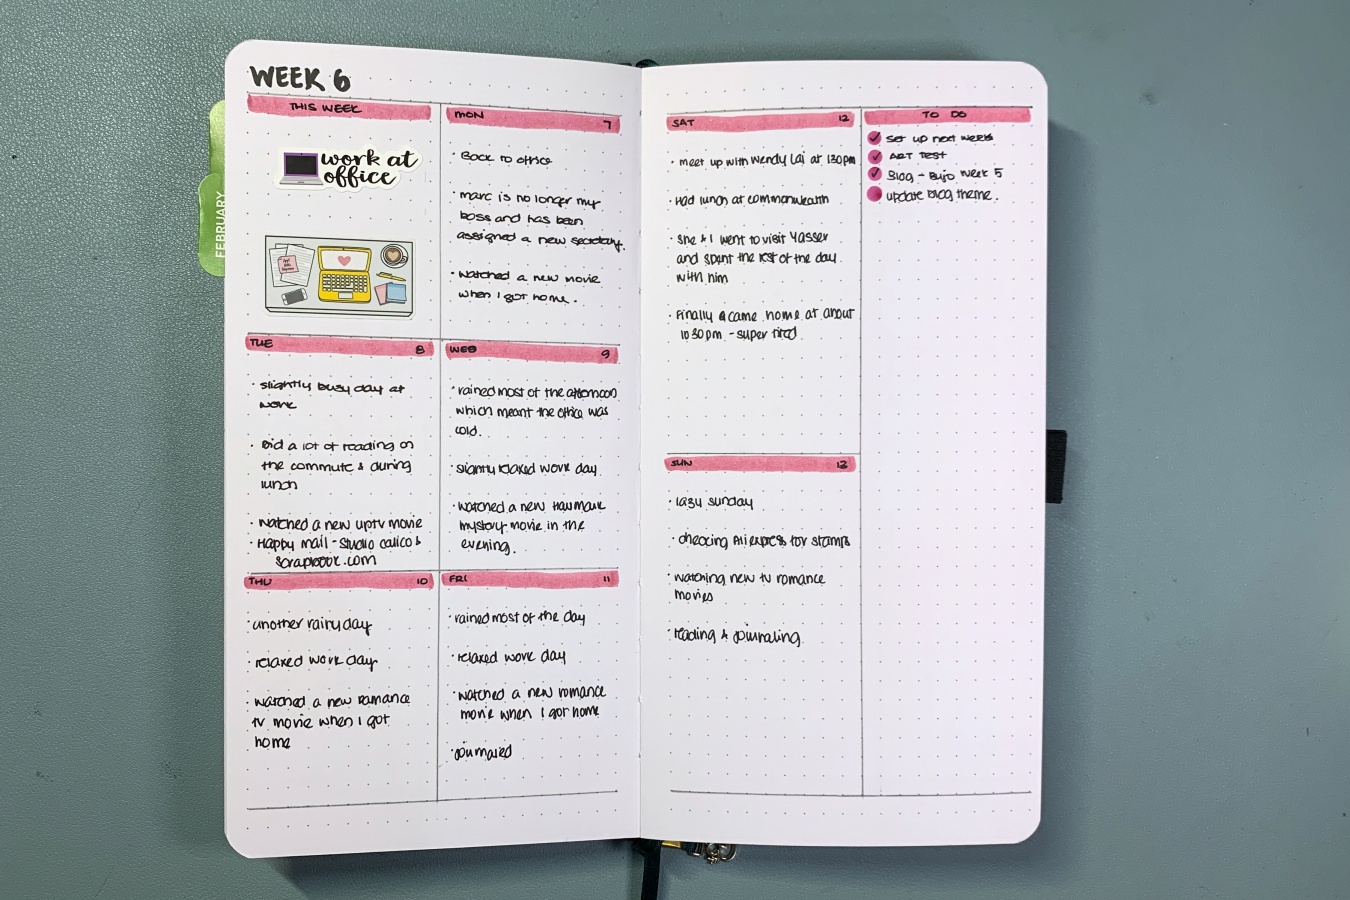 WEEK 6
THIS WEEK
work at
office
MON 7
· Back to office
· marc is no longer my
boss and has been
assigned a new secretary.
· watched a new movie
when I got home.
TUE 8
· slightly busy day at
work
· Did a lot of reading on
the commute & during
lunch
· watched a new uptv movie
· Happy mail - Studio calico &
scrapbook.com
WED 9
· rained most of the afternoon
which meant the office was
cold.
· slightly relaxed work day
· watched a new Hallmark
mystery movie in the
evening.
THU 10
· another rainy day
· relaxed work day
· watched a new romance
tv movie when I got
home
FRI 11
· rained most of the day
· relaxed work day
· watched a new romance
movie when I got home
· journaled
FEBRUARY
SAT 12
· meet up with Wendy Lai at 130pm
· Had lunch at commonwealth
· She & I went to visit Yasser
and spent the rest of the day
with him
· Finally came home at about
10 30pm - super tired
SUN 13
· lazy sunday
· checking Ali express for stamps
· watching new tv romance
movies
· reading & journaling
TO DO
set up next week
ART TEST
Blog - Bujo week 5
update blog theme.